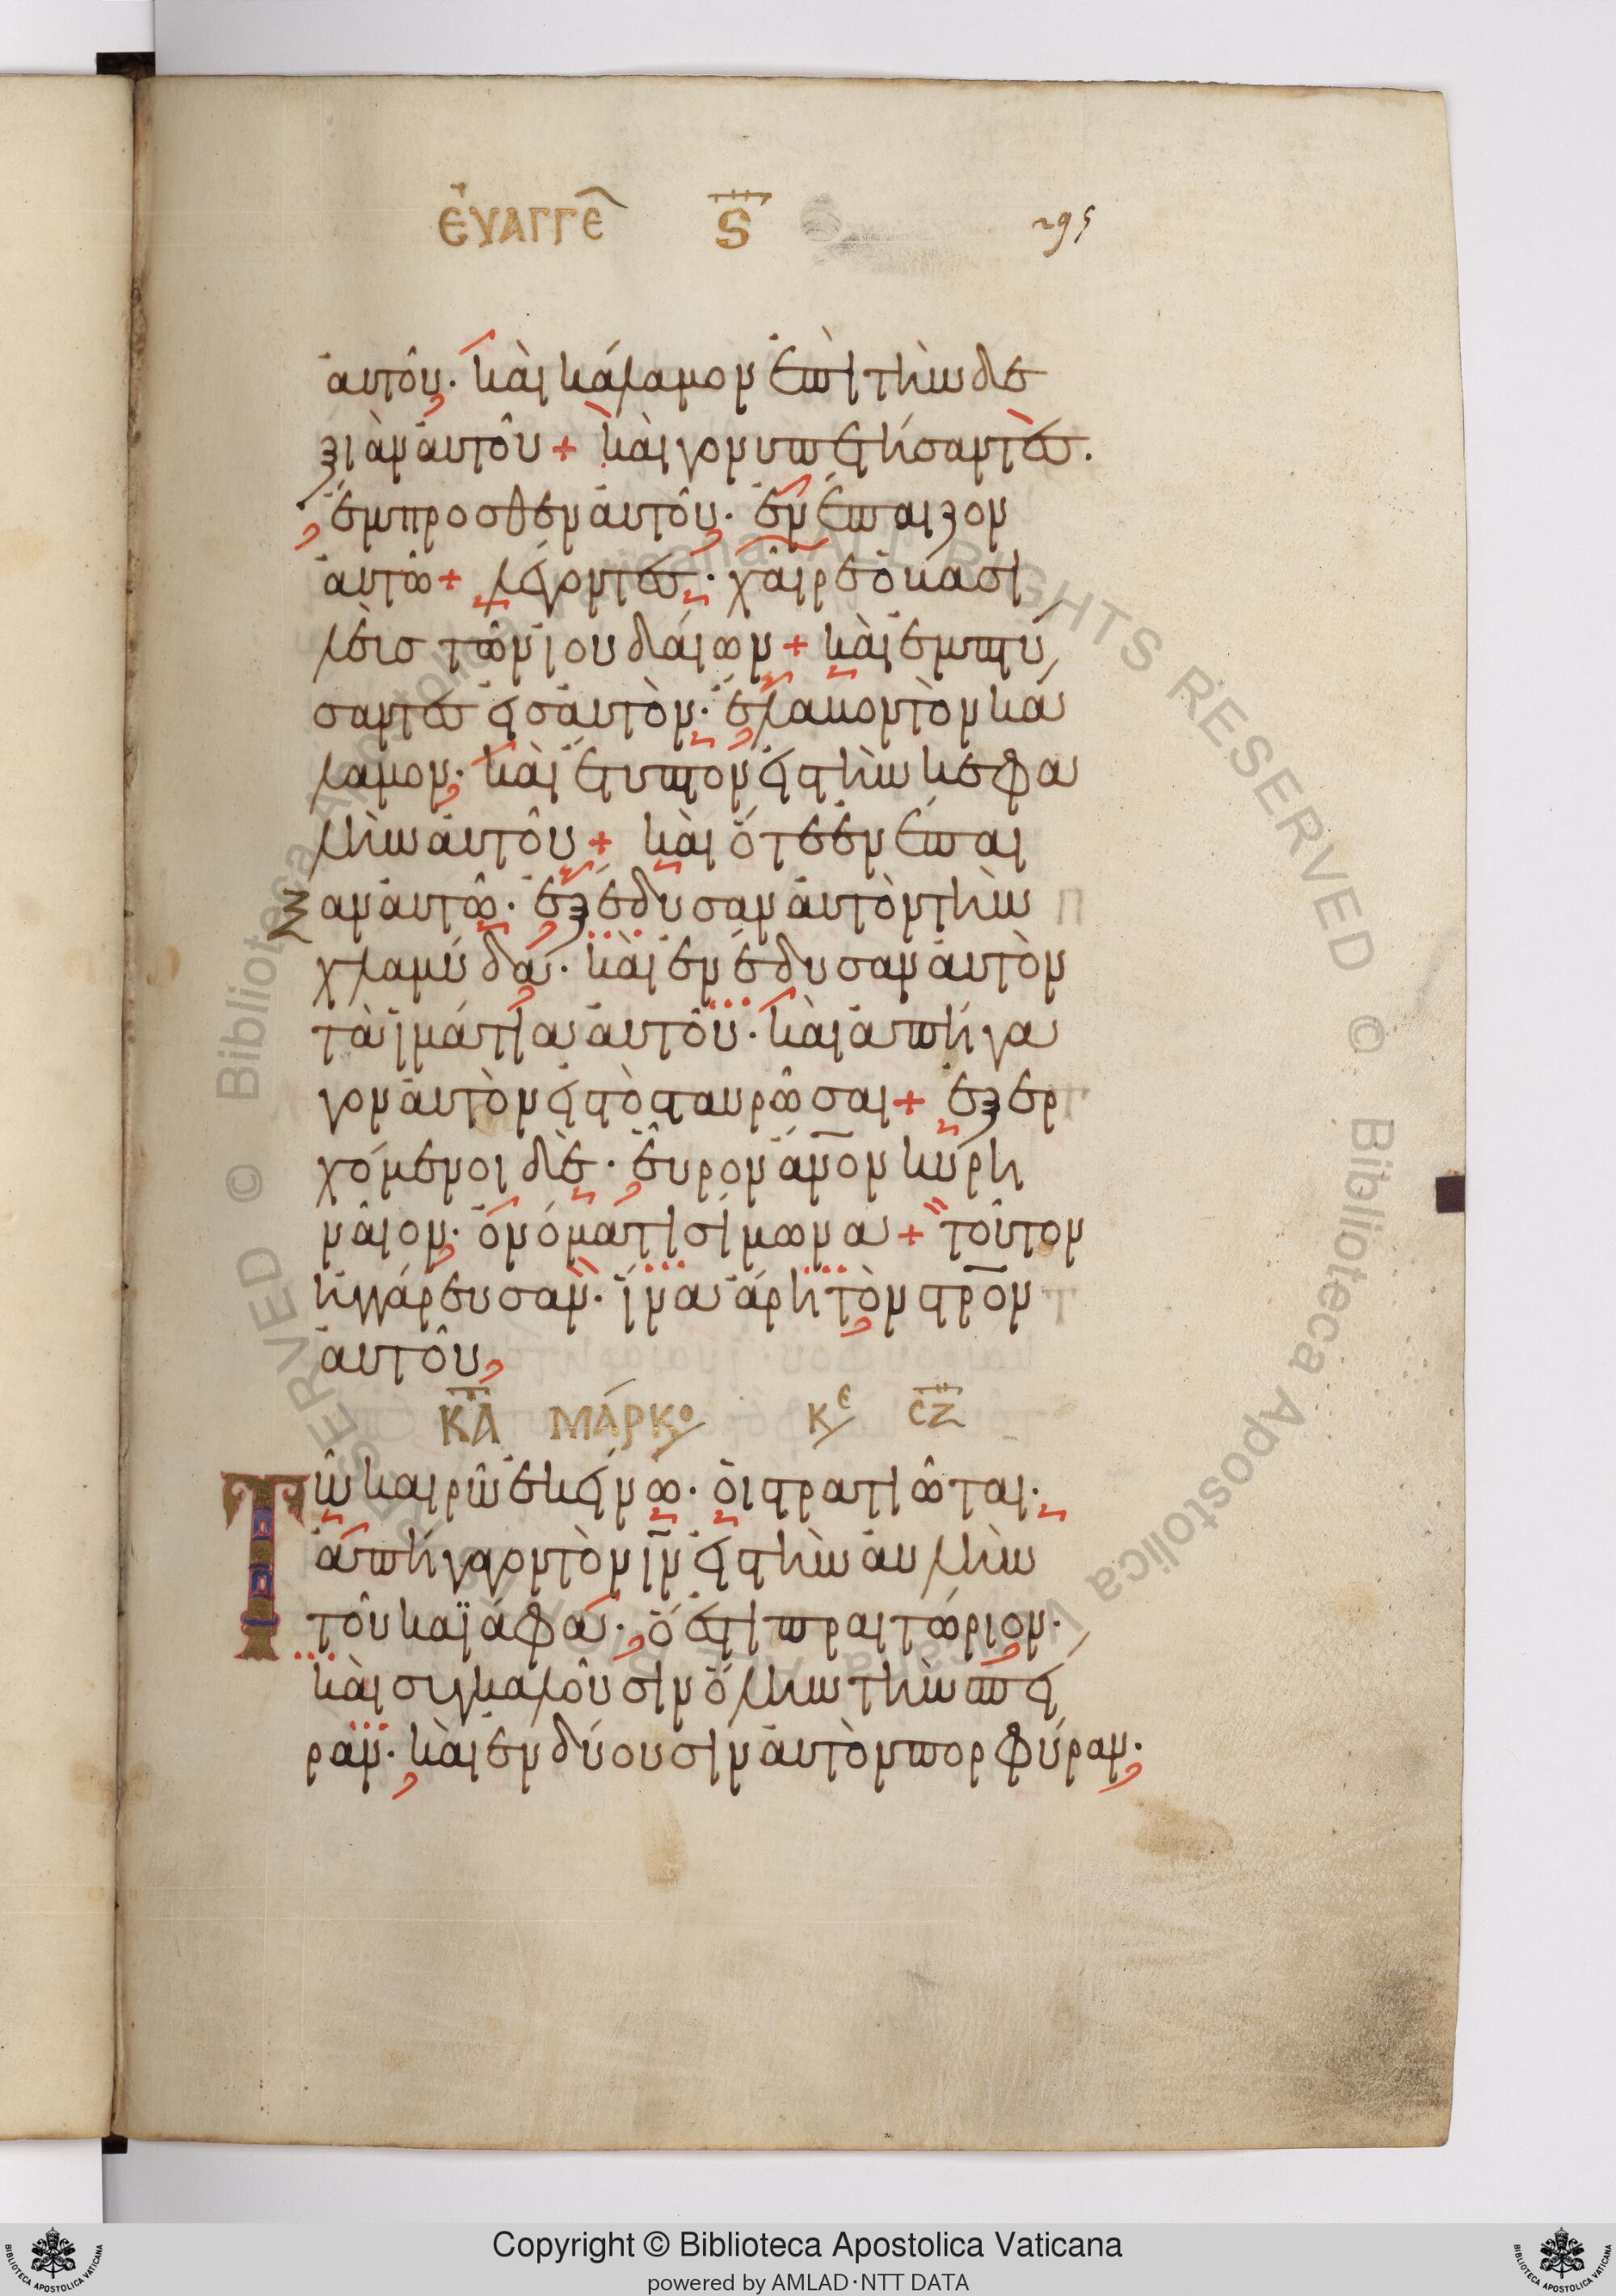 ΕΥΑΓΓΕ Ϛ 295
αὐτοῦ· καὶ κάλαμον ἐπὶ τὴν δε
ξιὰν αὐτοῦ + καὶ γονυπετήσαντες·
ἔμπροσθεν αὐτοῦ· ἐνέπαιζον
αὐτῶ + λέγοντες· χαῖρε ὁ βασι
λεὺς τῶν ἰουδαίων + καὶ ἐμπτύ
σαντες εἰς αὐτὸν· ἔλαβον τὸν κά
λαμον· καὶ ἔτυπτον εἰς τὴν κεφα
λὴν αὐτοῦ + καὶ ὅτε ἐνέπαι
ξαν αὐτῶ· ἐξέδυσαν αὐτὸν τὴν
χλαμύδα· καὶ ἐνέδυσαν αὐτὸν
τὰ ἱμάτια αὐτοῦ· καὶ ἀπήγα
γον αὐτὸν εἰς τὸ σταυρῶσαι + ἐξερ
χόμενοι δὲ· εὗρον ἄνον κυρη
ναῖον· ὀνόματι σίμωνα + τοῦτον
ἠγγάρευσαν· ἵνα ἄρη τὸν στρον
αὐτοῦ,
ΚΑ ΜΑΡΚΟ ΚΕ ϹΖ
Τῶ καιρῶ ἐκείνω· οἱ στρατιῶται·
ἀπήγαγον τὸν ιν εἰς τὴν αὐλὴν
τοῦ καϊάφα· ὅ ἐστι πραιτώριον·
καὶ συγκαλοῦσιν ὅλην τὴν σπεῖ
ραν· καὶ ἐνδύουσιν αὐτὸν πορφύραν·
Copyright © Biblioteca Apostolica Vaticana
powered by AMLAD·NTT DATA